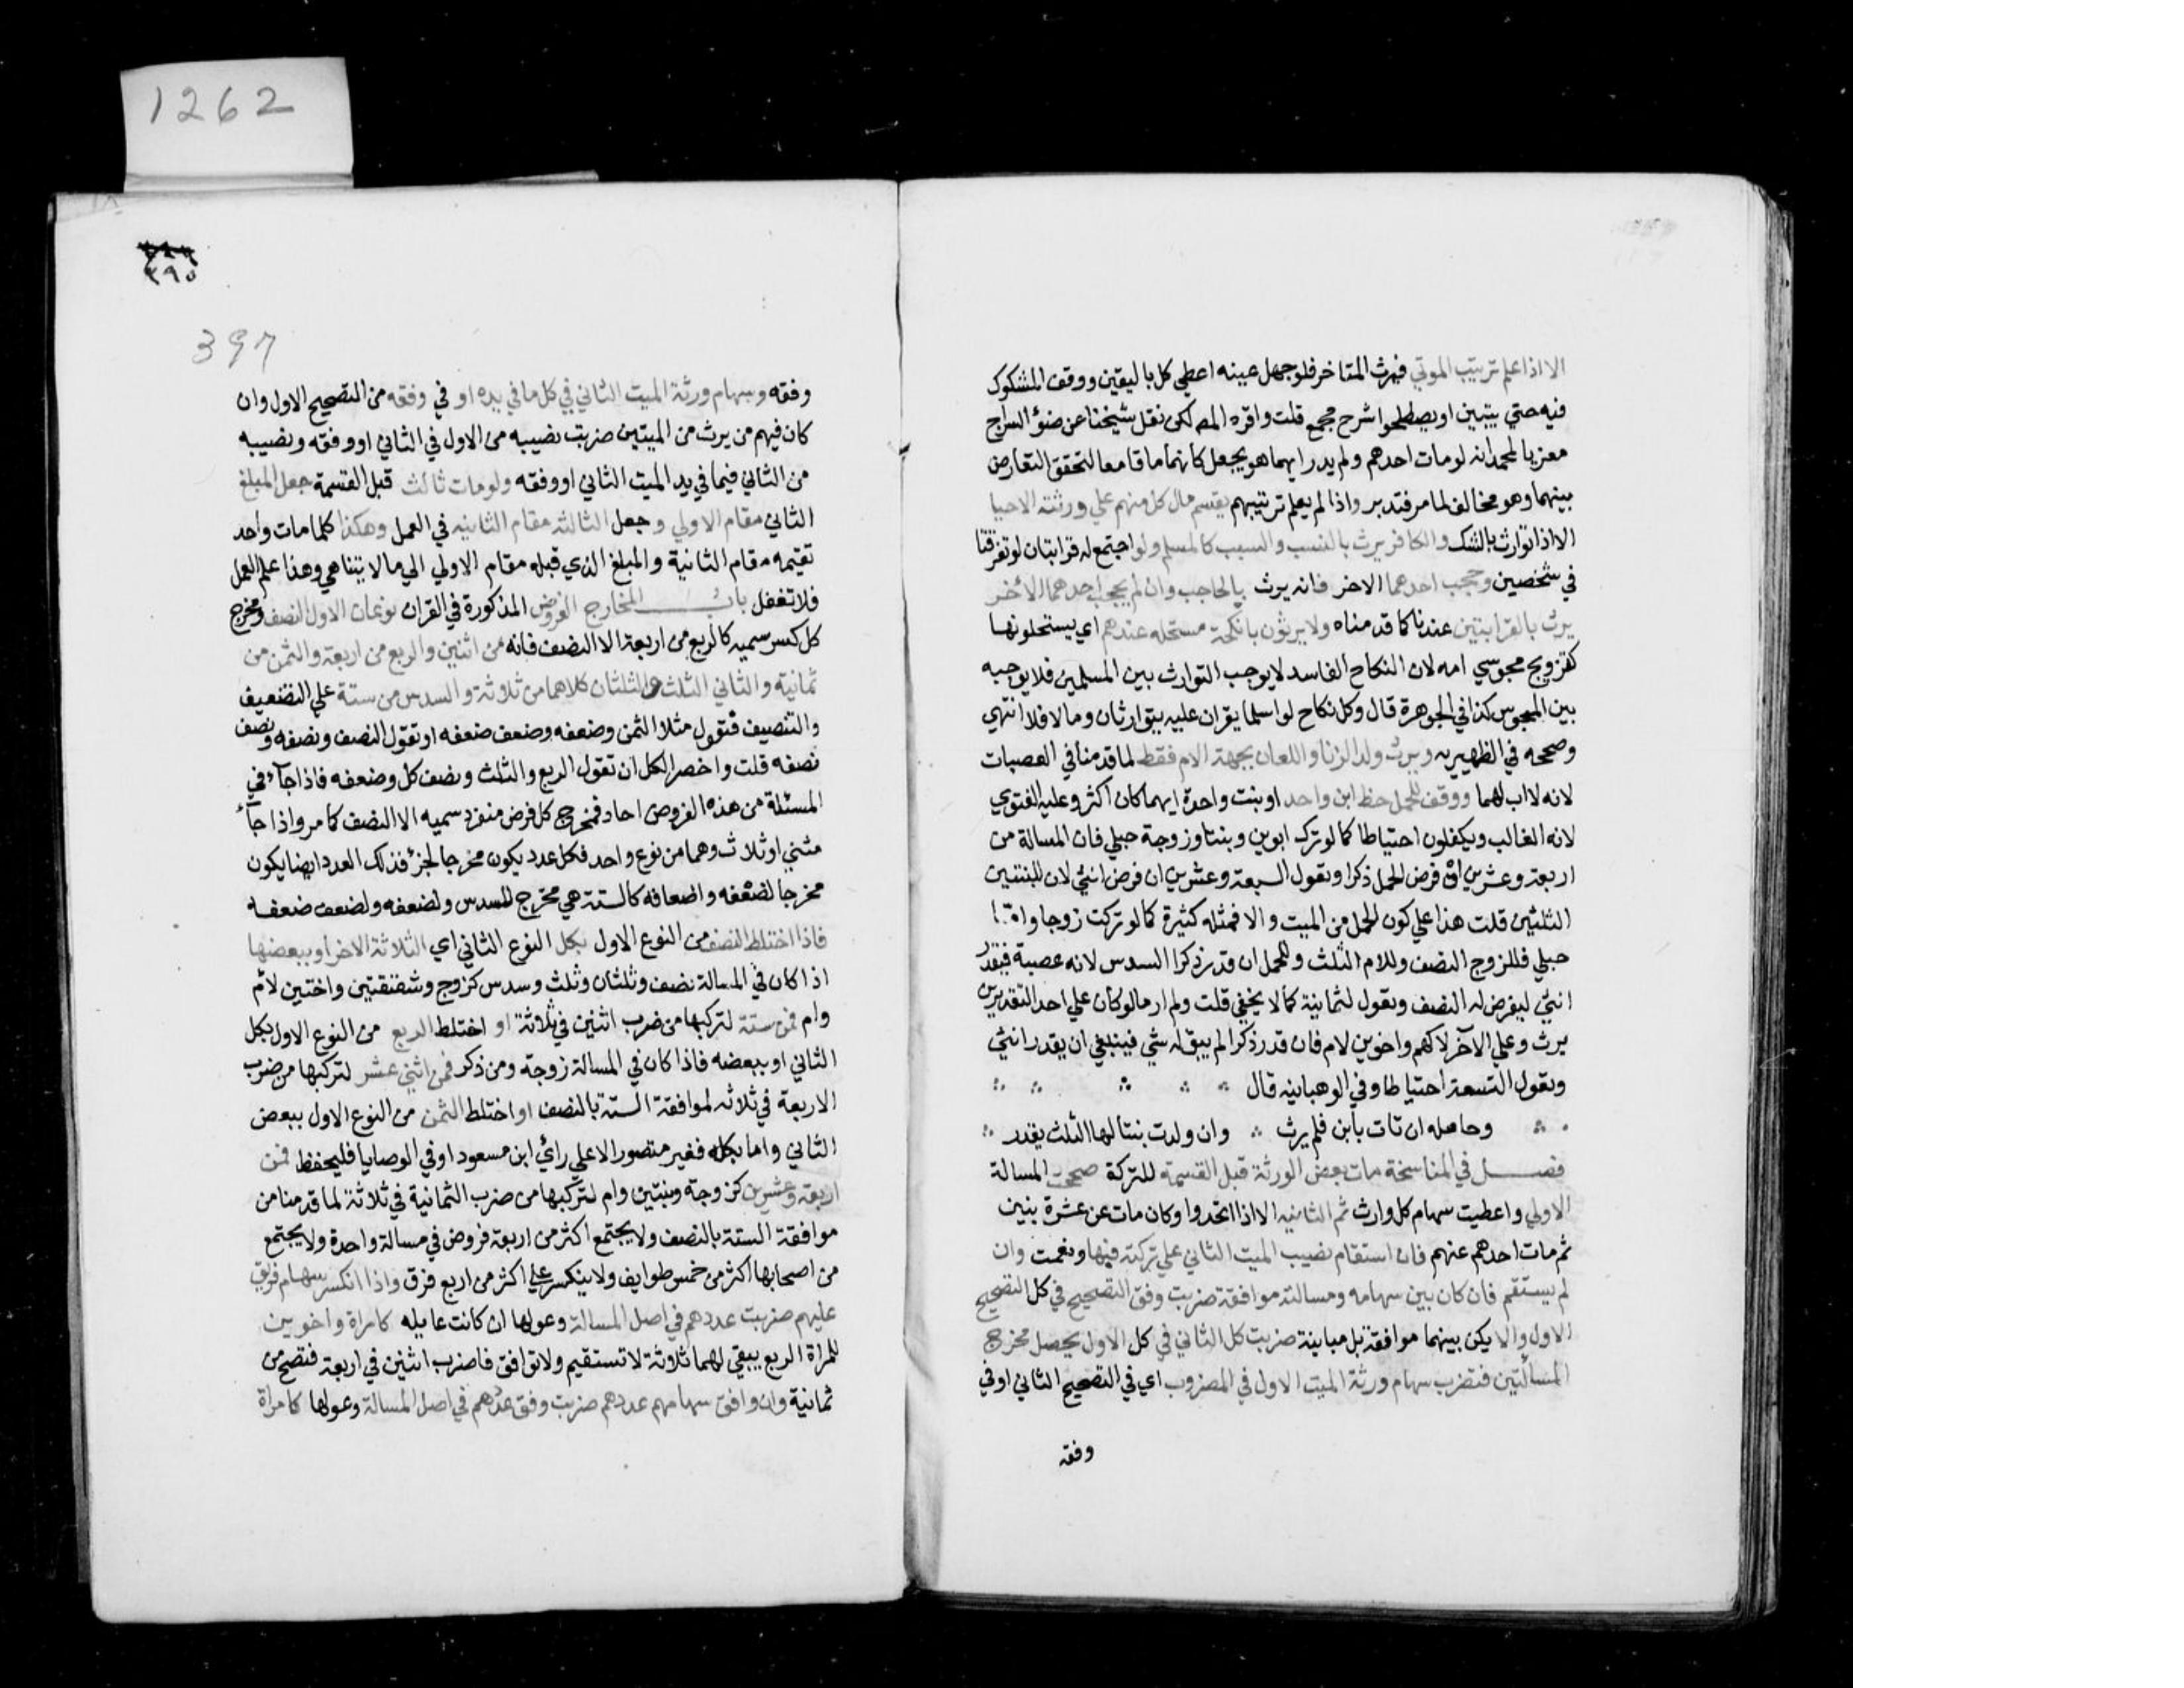 الا اذا علم ترتيب الموتي فيرث المتاخر فلو جهل عينه اعطي كل باليقين ووقف المشكوك
فيه حتي يتبين او يصطلحوا شرح مجمع قلت واقره المص لكن نقل شيخنا عن ضوء السراج
معزيا لمحمد انه لو مات احدهم ولم يدر ايهما هو يجعل كانهما ماتا معا لتحقق التعارض
بينهما وهو مخالف لما مر فتدبر واذا لم يعلم ترتيبهم يقسم مال كل منهم علي ورثته الاحيا
الا اذا توارث بالشك والكافر يرث بالنسب والسبب كالمسلم ولو اجتمع له قرابتان لو تفرقتا
في شخصين وحجب احدهما الاخر فانه يرث بالحاجب وان لم يحجب احدهما الاخر
يرث بالقرابتين عندنا كما قدمناه ولا يرثون بانكحة مستحله عندهم اي يستحلونها
كتزويج مجوسي امه لان النكاح الفاسد لا يوجب التوارث بين المسلمين فلا يوجبه
بين المجوس كذا في الجوهرة قال وكل نكاح لو اسلما يقران عليه يتوارثان وما لا فلا انتهي
وصححه في الظهيريه ويرث ولد الزنا واللعان بجهة الام فقط لما قدمنا في العصبات
لانه لا اب لهما ووقف للحمل حظ ابن واحد او بنت واحدة ايهما كان اكثر وعليه الفتوي
لانه الغالب ويكفلون احتياطا كما لو ترك ابوين وبنتا وزوجة حبلي فان المسالة من
اربعة وعشرين ان فرض الحمل ذكرا وتعول لسبعة وعشرين ان فرض انثي لان للبنتين
الثلثين قلت هذا علي كون الحمل من الميت والا فمثله كثيرة كما لو تركت زوجا واما
حبلي فللزوج النصف وللام الثلث وللحمل ان قدر ذكرا السدس لانه عصبة فيقدر
انثي ليفرض له النصف وتعول لثمانية كما لا يخفي قلت ولم ار ما لو كان علي احد التقديرين
يرث وعلي الآخر لا كهم واخوين لام فان قدر ذكرا لم يبق له شي فينبغي ان يقدر انثي
وتعول التسعة احتياطا وفي الوهبانيه قال
وحامله ان تات بابن فلم يرث وان ولدت بنتا لها الثلث يقدر
فصل في المناسخة مات بعض الورثة قبل القسمة للتركة صححت المسالة
الاولي واعطيت سهام كل وارث ثم الثانيه الا اذا اتحدوا وكان مات عن عشرة بنين
ثم مات احدهم عنهم فان استقام نصيب الميت الثاني علي تركته فيها ونعمت وان
لم يستقم فان كان بين سهامه ومسالته موافقة ضربت وفق التصحيح في كل التصحيح
الاول والا يكن بينهما موافقة بل مباينة ضربت كل الثاني في كل الاول يحصل مخرج
المسالتين فتضرب سهام ورثة الميت الاول في المضروب اي في التصحيح الثاني او في
وفقه
٣٩٥
397
وفقه وسهام ورثة الميت الثاني في كل ما في يده او في وفقه من التصحيح الاول وان
كان فيهم من يرث من الميتين ضربت نصيبه من الاول في الثاني او وفقه ونصيبه
من الثاني فيما في يد الميت الثاني او وفقه ولو مات ثالث قبل القسمة جعل المبلغ
الثاني مقام الاولي وجعل الثالثة مقام الثانيه في العمل وهكذا كلما مات واحد
تقيمه مقام الثانية والمبلغ الذي قبله مقام الاولي الي ما لا يتناهي وهذا علم العمل
فلا تغفل باب المخارج الفروض المذكورة في القران نوعان الاول النصف ومخرج
كل كسر سميه كالربع من اربعة الا النصف فانه من اثنين والربع من اربعة والثمن من
ثمانية والثاني الثلث والثلثان كلاهما من ثلاثة والسدس من ستة علي التضعيف
والتنصيف فتقول مثلا الثمن وضعفه وضعف ضعفه او تقول النصف ونصفه ونصف
نصفه قلت واخصر الكل ان تقول الربع والثلث ونصف كل وضعفه فاذا جآء في
المسئلة من هذه الفروض احاد فمخرج كل فرض منفرد سميه الا النصف كما مر واذا جآء
مثني او ثلاث وهما من نوع واحد فكل عدد يكون مخرجا لجزء فذلك العدد ايضا يكون
مخرجا لضعفه واضعافه كالستة هي مخرج للسدس ولضعفه ولضعف ضعفه
فاذا اختلط النصف من النوع الاول بكل النوع الثاني اي الثلاثة الاخر او ببعضها
اذا كان في المسالة نصف وثلثان وثلث وسدس كزوج وشقيقتين واختين لام
وام فمن ستة لتركبها من ضرب اثنين في ثلاثة او اختلط الربع من النوع الاول بكل
الثاني او ببعضه فاذا كان في المسالة زوجة ومن ذكر فمن اثني عشر لتركبها من ضرب
الاربعة في ثلاثه لموافقة الستة بالنصف او اختلط الثمن من النوع الاول ببعض
الثاني واما بكله فغير متصور الا علي راي ابن مسعود او في الوصايا فليحفظ فمن
اربعة وعشرين كزوجة وبنتين وام لتركبها من ضرب الثمانية في ثلاثة لما قدمنا من
موافقة الستة بالنصف ولا يجتمع اكثر من اربعة فروض في مسالة واحدة ولا يجتمع
من اصحابها اكثر من خمس طوايف ولا ينكسر علي اكثر من اربع فرق واذا انكسر سهام فريق
عليهم ضربت عددهم في اصل المسالة وعولها ان كانت عايله كامراة واخوين
للمراة الربع يبقي لهما ثلاثة لا تستقيم ولا توافق فاضرب اثنين في اربعة فتصح من
ثمانية وان وافق سهامهم عددهم ضربت وفق عددهم في اصل المسالة وعولها كامراة
1262